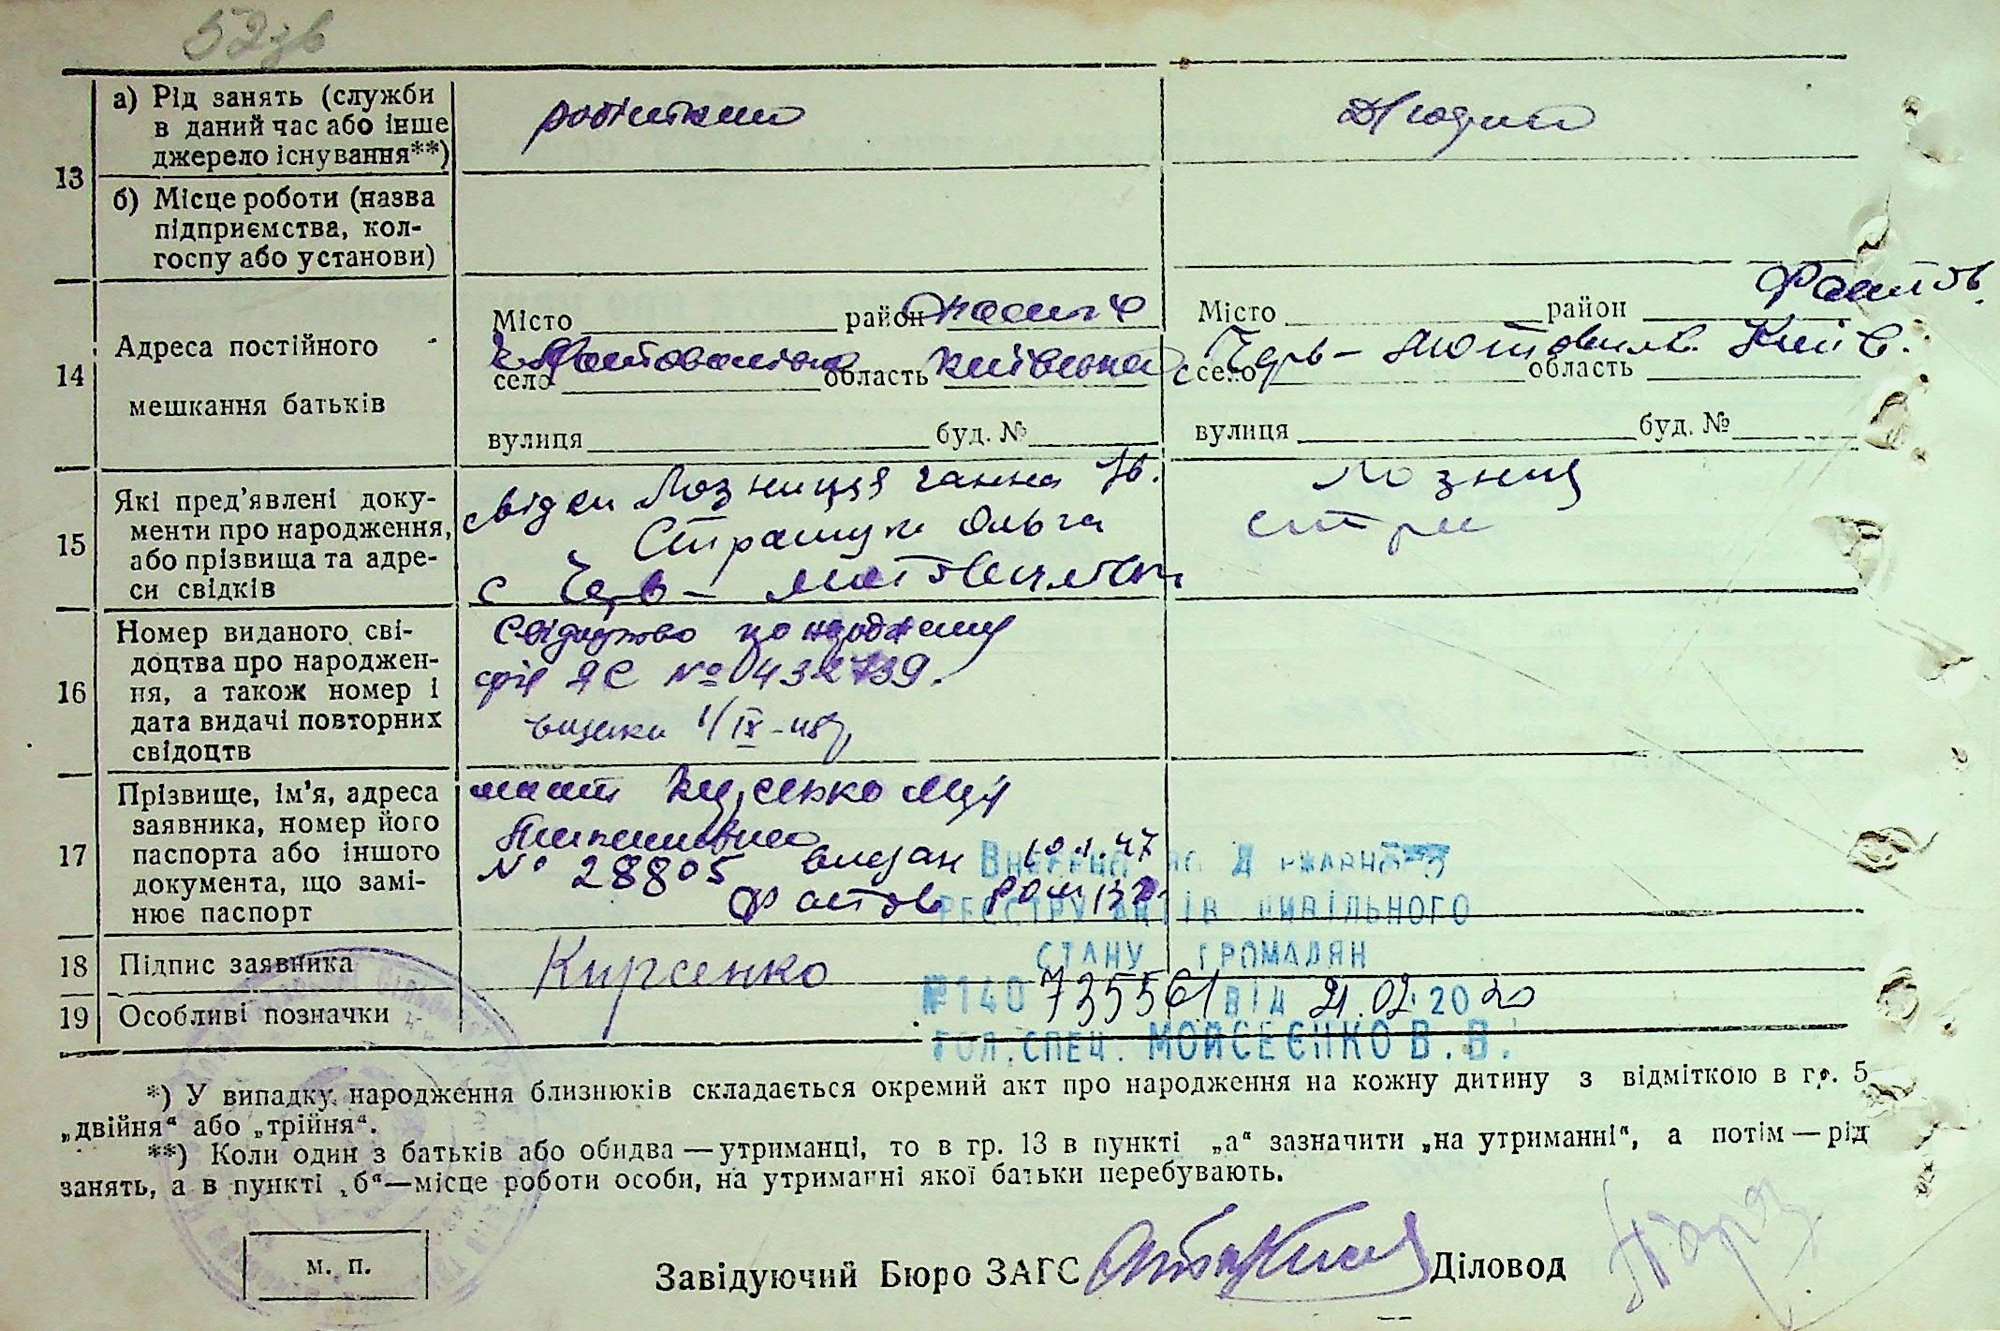 52зв
13
а) Рід занять (служби
в даний час або інше
джерело існування**)
б) Місце роботи (назва
підприємства, кол-
госпу або установи)
14
Адреса постійного
мешкання батьків
Місто район
село область Київська
вулиця буд. №
Місто район Фастів.
с село Черв - Мотовилів. Київ.
область
вулиця буд. №
15
Які пред'явлені доку-
менти про народження,
або прізвища та адре-
си свідків
свідки Лозниця Ганна
Страшук Ольга
с Черв -
Лозниц
стра
16
Номер виданого сві-
доцтва про народжен-
ня, а також номер і
дата видачі повторних
свідоцтв
Свідоцтво по народженню
ЯС № 0432739.
1/IX-48р.
17
Прізвище, ім'я, адреса
заявника, номер його
паспорта або іншого
документа, що замі-
нює паспорт
мати
Пилиповна
№ 28805 видан 10.1.47
Фастов
18
Підпис заявника
Кирсенко
19
Особливі позначки
Внесено до Державного
реєстру актів цивільного
стану громадян
№140 735561 від 21.02.2020
гол. спец. Мойсеєнко В. В.
*) У випадку народження близнюків складається окремий акт про народження на кожну дитину з відміткою в гр. 5
„двійня“ або „трійня“.
**) Коли один з батьків або обидва — утриманці, то в гр. 13 в пункті „а“ зазначити „на утриманні“, а потім — рід
занять, а в пункті „б“—місце роботи особи, на утриманні якої батьки перебувають.
м. п.
Завідуючий Бюро ЗАГС
Діловод